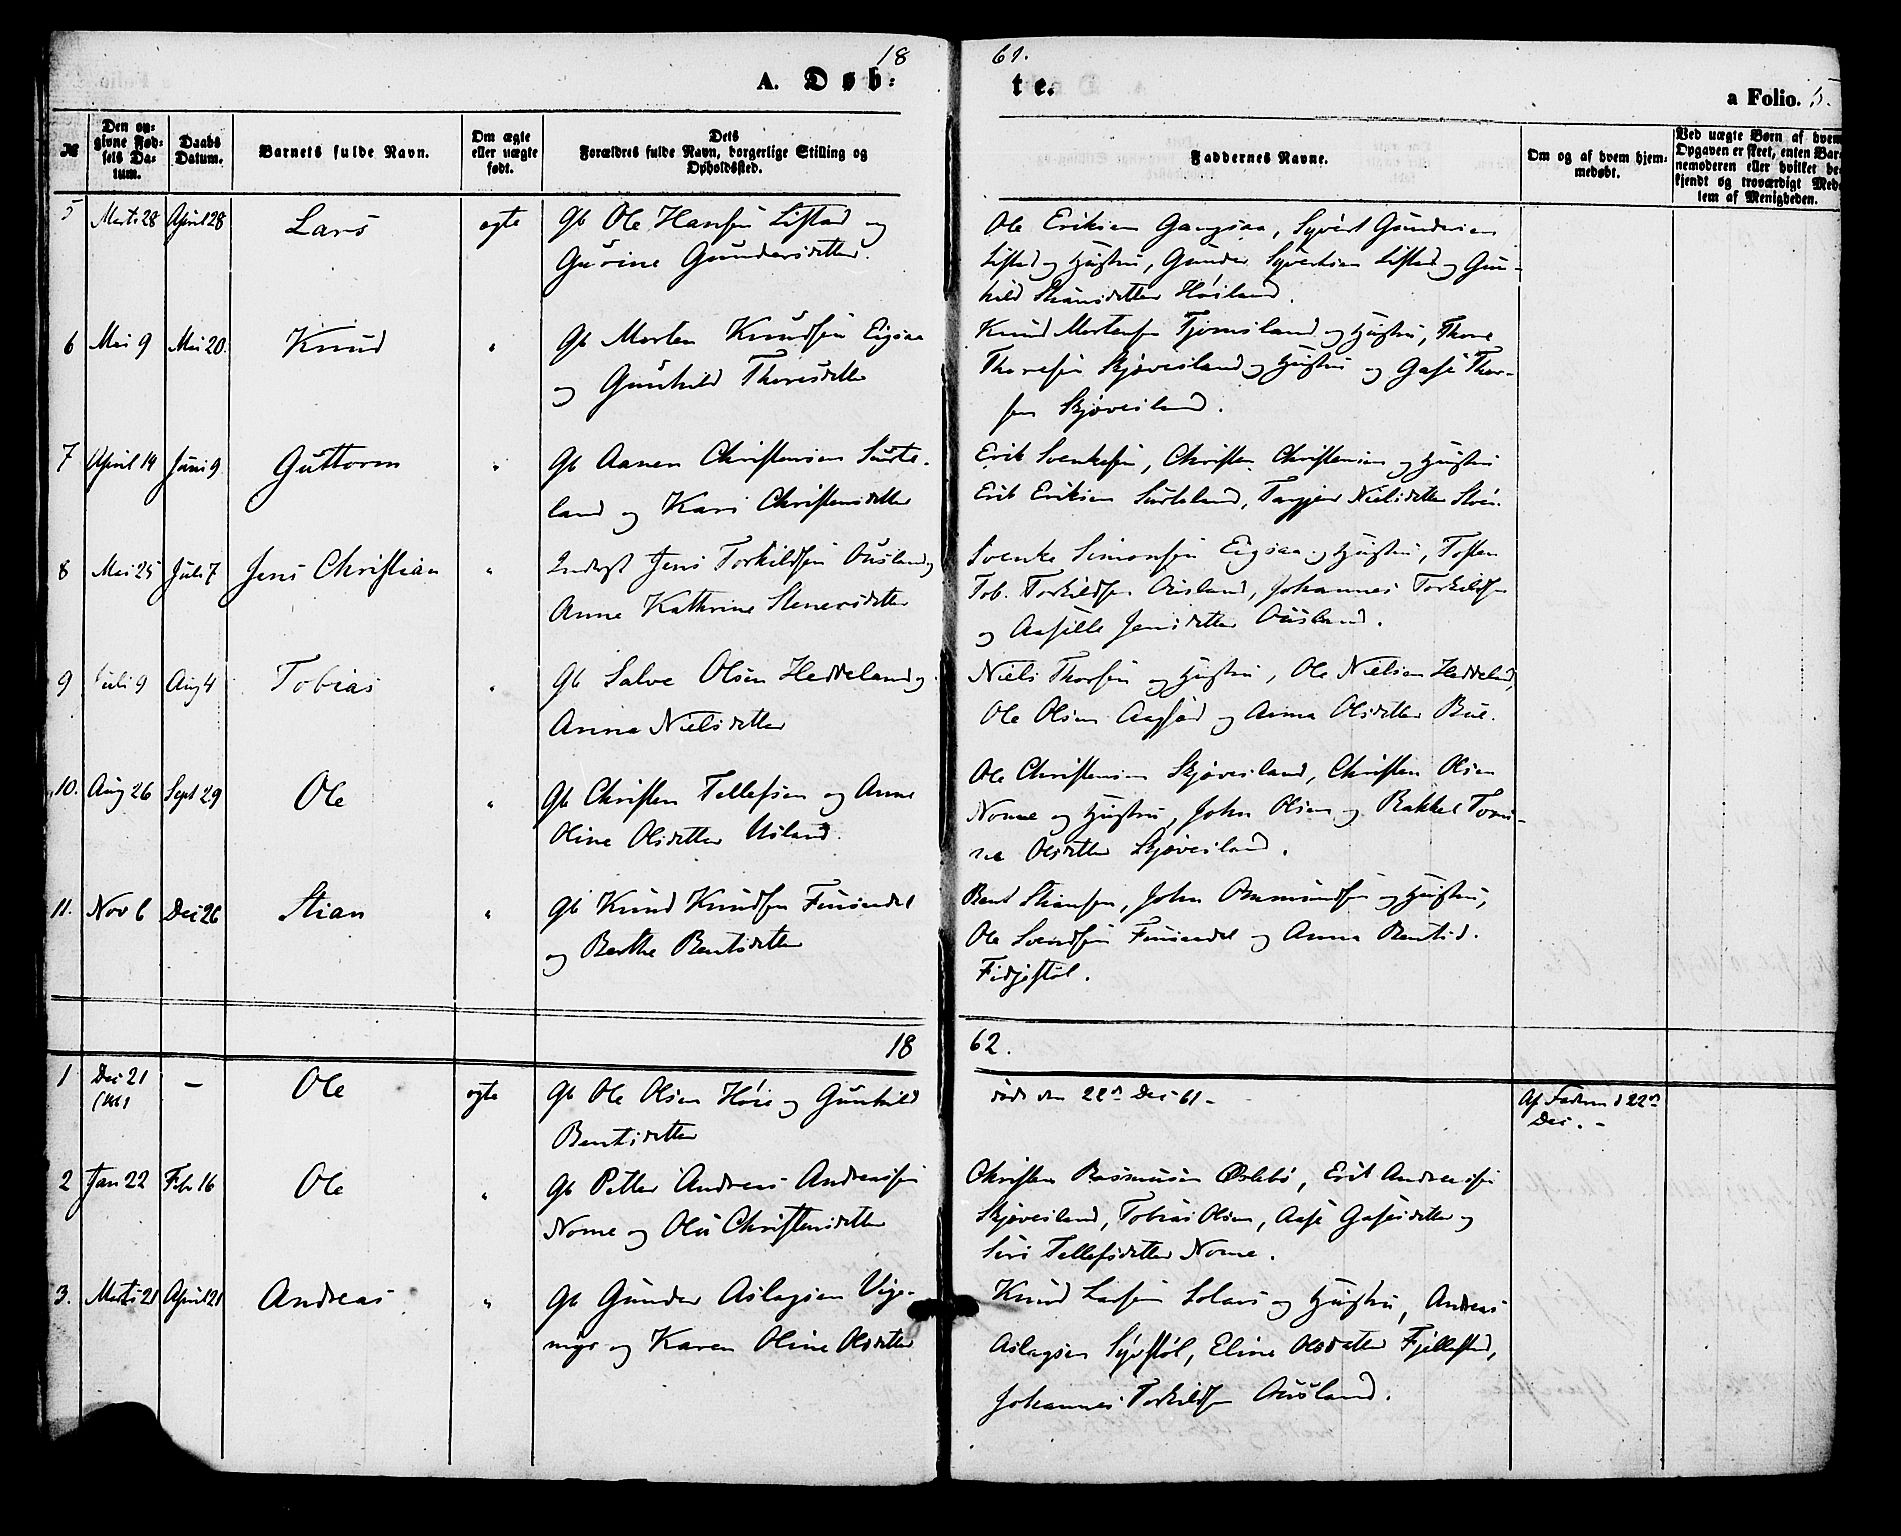 18 61.
A. Døb: te.
a Folio. 5.
№
Den opgivne Fødsels Datum.
Daabs Datum.
Barnets fulde Navn.
Om ægte eller uægte født.
Dets Forældres fulde Navn, borgerlige Stilling og Opholdssted.
Faddernes Navne.
Om og af hvem hjemmedøbt.
Ved uægte Børn af hvem Opgaven er skeet, enten Barnemoderen eller hvilket bekjendt og troværdigt Medlem af Menigheden.
5 Marts 28 April 28 Lars ægte Gb Ole Hansen Listad og
Gurine Gundersdatter.
Ole Eriksen Gangsaa, Syvert Gundersen
Listad og Hustru, Gunder Syvertsen Listad og Gun-
hild Stiansdatter Høiland.
6 Mai 9 Mai 20. Knud " Gb Morten Knudsen Eigsaa
og Gunhild Thoresdatter
Knud Mortensen Tjomsland og Hustru, Thore
Thoresen Skjøvesland og Hustru og Gase Thor-
sen Skjøvesland.
7 April 14 Juni 9 Guttorm " Gb Aanen Christensen Surte-
land og Kari Christensdatter
Erik Svenkesen, Christen Christensen og Hustru
Erik Eriksen Surteland, Targjer Nielsdatter
8 Mai 25 Juli 7 Jens Christian " Inderst Jens Torkildsen Ausland og
Anne Kathrine Stenersdatter
Svenke Simonsen Eigsaa og Hustru, Tosten
Tob. Torkildsen Ausland, Johannes Torkildsen
og Aasille Jensdatter Ausland.
9 Juli 9 Aug 4 Tobias " Gb Salve Olsen Heddeland og
Anna Nielsdatter
Niels Thorsen og Hustru, Ole Nielsen Heddeland,
Ole Olsen og Anna Olsdatter Bue.
10. Aug 26 Sept 29 Ole " Gb Christen Tellefsen og Anne
Oline Olsdatter Usland.
Ole Christensen Skjøvesland, Christen Olsen
Nome og Hustru, John Olsen og Rakkel Tomi-
ne Olsdatter Skjøvesland.
11. Nov 6 Dec 26 Stian " Gb Knud Knudsen Finsadal
og Berthe Bentsdatter
Bent Stiansen, John Osmundsen og Hustru,
Ole Svendsen Finsadal og Anna Bentsd.
Fidjestøl.
18 62.
1 Dec 21 (61) – Ole ægte Gb Ole Olsen Høie og Gunhild
Bentsdatter
død den 22de Dec 61 –
Af Faderen d 22de
Dec. –
2 Jan 22 Febr 16 Ole " Gb Petter Andreas Andreassen
Nome og Christensdatter
Christen Rasmussen Øslebø, Erik Andreassen
Skjøvesland, Tobias Olsen, Aase Gasesdatter og
Siri Tellefsdatter Nome.
3. Marts 21 April 21 Andreas " Gb Gunder Aslagsen Vige-
myr og Karen Oline Olsdatter
Knud Larsen Solaas og Hustru, Andreas
Aslagsen Syvstøl, Eline Olsdatter Fjellestad,
Johannes Torkildsen Ausland.